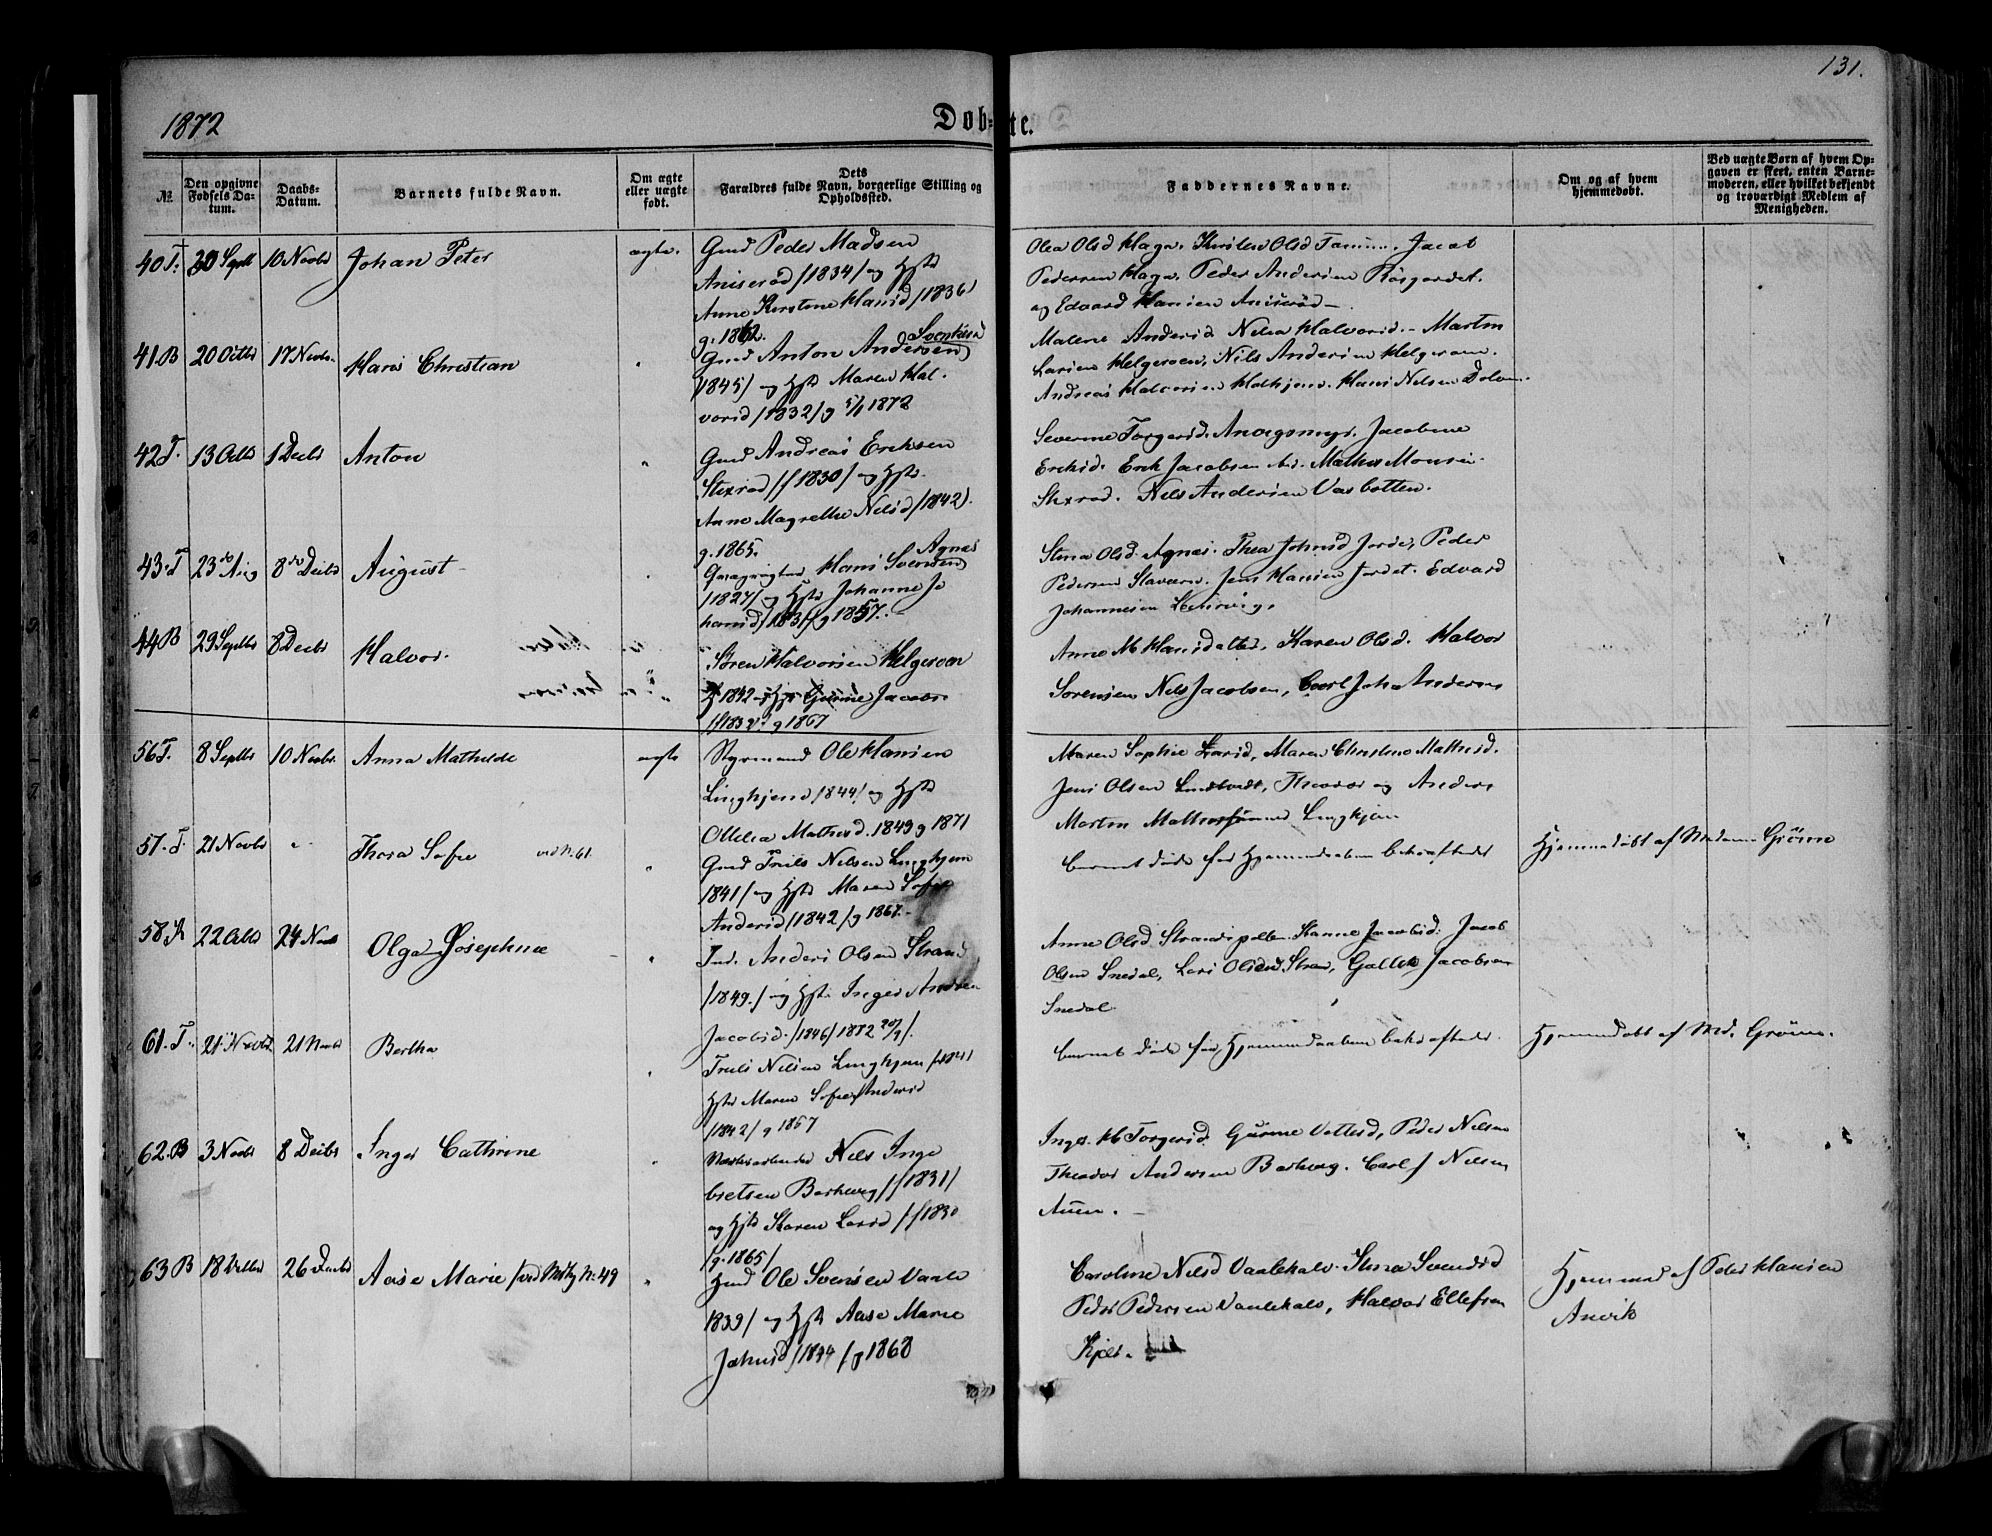 131.
1872
Døb- te.
No
Den opgivne Fødsels Datum.
Daabs-Datum.
Barnets fulde Navn.
Om ægte eller uægte født.
Dets Forældres fulde Navn, borgerlige Stilling og Opholdssted.
Faddernes Navne.
Om og af hvem hjemmedøbt.
Ved uægte Børn af hvem Opgaven er skeet, enten Barnemoderen, eller hvilket bekjendt og troværdigt Medlem af Menigheden.
40 T. 30 Septb 10 Novbr Johan Peter ægte.
Gmd Peder Madsen
Aniserød /1834/ og Hst
Anne Kirstine Hansd /1836/
g. 1862.
Olea Olsd Haga. Kirsten Olsd Jacob
Pedersen Haga. Peder Andersen
og Edvard Hansen Aniserød
41. B 20 Octbr 17 Novbr. Hans Christian "
Svenkerød
Gmd Anton Andersen
/1845/ og Hst Maren Hal-
vorsd /1832/ g 5/1 1872
Malene Andersd Nilea Halvorsd. Martin
Larsen Helgeroen, Nils Andersen Helgeroen.
Andreas Halvorsen Hans Nilsen
42 T. 13 Octbr 1 Decbr Anton "
Gmd Andreas Eriksen
/f 1830/ og Hst.
Anne Magrethe Nilsd /1842/.
g. 1865.
Severine Torgersd. Jacobine
Eriksd. Erik Jacobsen Mathis Monsen
Nils Andersen Vasbotten.
43. T 23de Aug 8de Decbr August "
Agnæs
Hans Svensen
/1827/ og Hst Johanne Jo
hansd /1831/ g 1857.
Stina Olsd. Agnæs. Thea Johnsd Jorde, Peder
Pedersen Staværn. Jens Hansen Jordet. Edvard
Johannesen
44 B 29 Septbr 8 Decbr Halvor.
Søren Halvorsen Helgeroen
f 1842 og Hst Gurine Jacobs.
/f 1832 g 1867
Anne M Hansdatter, Karen Olsd. Halvor
Sørensen Nils Jacobsen, Carl Joh Andersen
56 T. 8 Septbr 10 Novbr. Anna Mathilde ægte
Styrmand Ole Hansen
Linghjem /1844/ og Hst
Ottilia Mathisd. 1849 g 1871
Maren Sophie Larsd, Maren Christine Mathisd.
Jens Olsen Theodor og Anders
Martin Linghjem
57. T. 21 Novbr " Thora Sofie vid N. 61. "
Gmd Truls Nilsen Linghjem
1841/ og Hst Maren Sofie
Andersd /1842/ g 1867.
Barnet døde før Hjemmedaaben bekræftedes
Hjemmedøbt af Madame Grøme
58. 22 Octbr 24 Novbr Olga Josephine "
Ind. Anders Olsen Strand
/1849./ og Hst Inger Andrea
Jacobsd. /1846/ 1872 20/9/.
Anne Olsd Hanne Jacobsd. Jacob
Olsen Snedal, Lars Olsen Strand, Jacobsen
Snedal
61. T. 21 Novbr 21 Novbr Bertha "
Truls Nilsen Linghjem f 1841
Hst Maren Sofie Andersd
/1842/ g 1867
Barnet døde før Hjemmedaaben bekræftedes.
Hjemmedøbt af Md. Grøme.
62. B 3 Novbr 8 Decbr Inger Cathrine "
Nils Inge
bretsen Barhaug /f 1831/
og Hst Karen Larsd /f 1830
/g. 1865/
Inger. M Torgersd. Gurine Vettesd, Peder Nilsen
Theodor Andersen Barhaug. Carl J Nilsen
Auen.
63 B 18 26 Aase Marie /vid No 49 "
Gmd Ole Svensen Vaale
1839/ og Hst Aase Marie
Johnsd /1844 /g 1868
Caroline Nilsd Vaalehals. Stina Svendsd
Peder Pedersen Vaalehals, Halvor Ellefsen
Kjær.
Hjemmed af Peder Hansen
Anvik